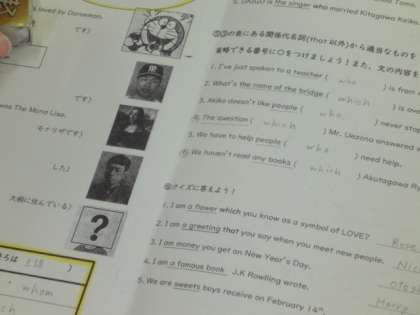 s loved by Doraemon.
です)
was The Mona Lisa.
モナリザです)
した)
大統に住んでいる)
?
whom
. DAIGO is the singer who married Kitagawa Keiko.
の表にある関係代名詞(that 以外)から適当なものを
省略できる番号に○をつけましょう!また、文の内容を
1. I've just spoken to a teacher ( who ) is from
2. What's the name of the bridge ( which ) is ove
3. Akiko doesn't like people ( who ) never sto
4. The question ( which ) Mr. Uezono answered w
5. We have to help people ( who ) need help.
6. We haven't read any books ( which ) Akutagawa Ry
クイズに答えよう!
1. I am a flower which you know as a symbol of LOVE? Rose
2. I am a greeting that you say when you meet new people. Nic
3. I am money you get on New Year's Day. Otosh
4. I am a famous book J.K Rowling wrote. Harry
5. We are sweets boys receive on February 14th.